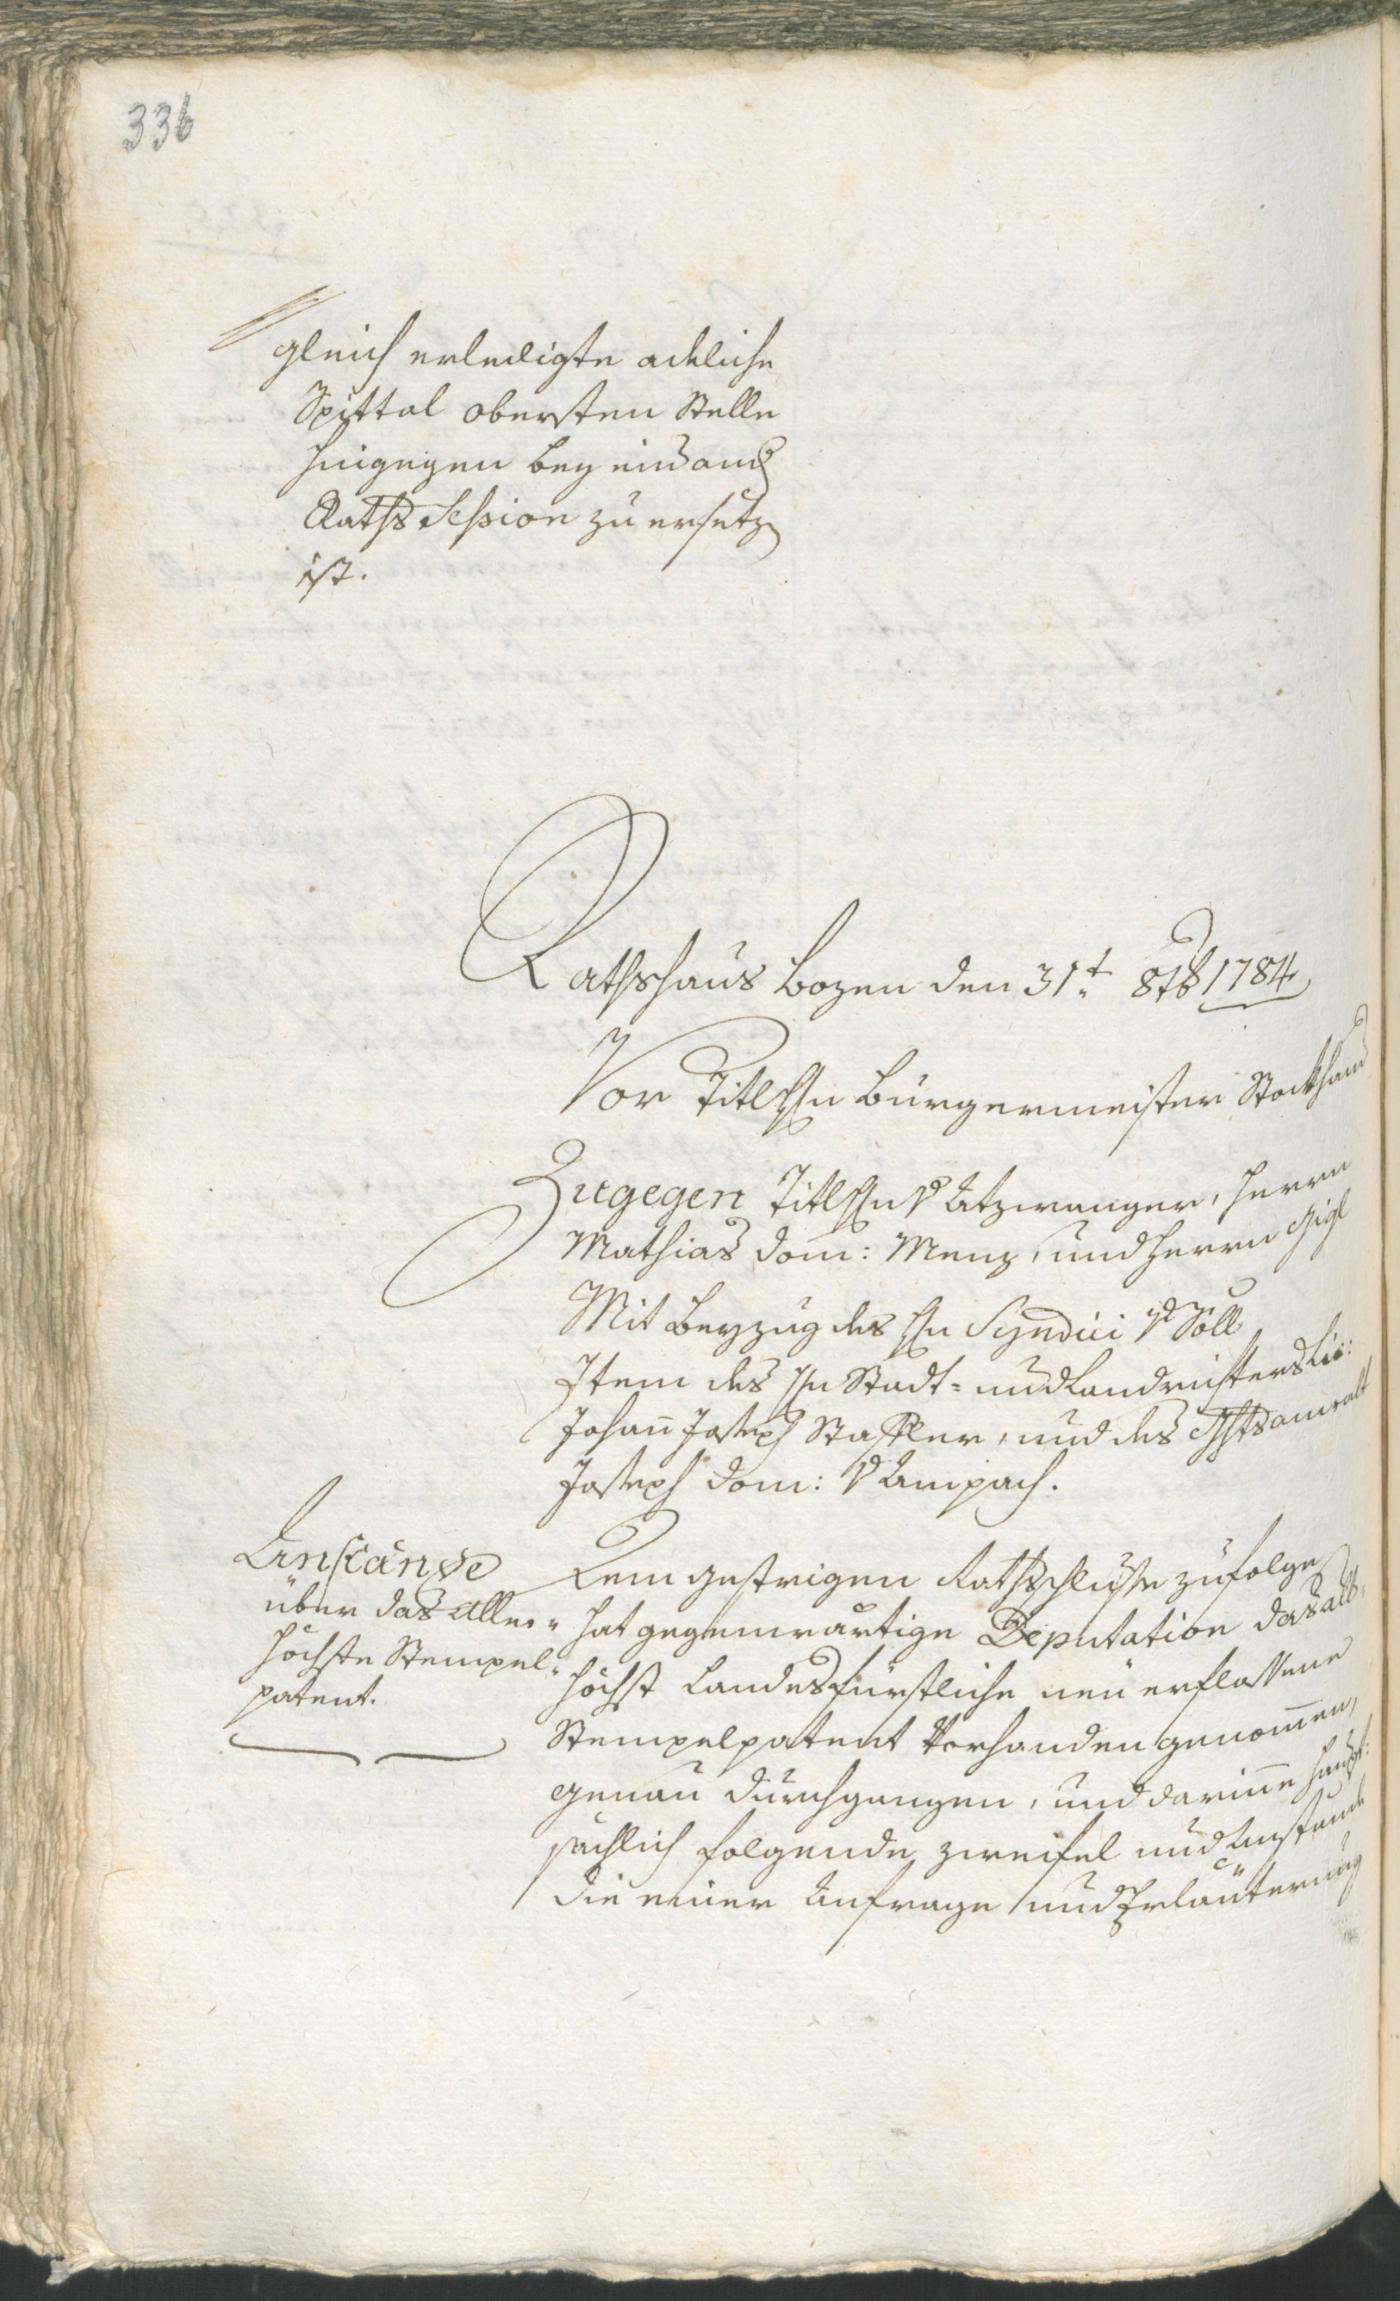 336
gleich erledigte adeliche
Spittal obersten Stelle
hingegen bey ein and
Raths Session zu ersetz
ist.
Rathshaus Bozen den 31t. 8tb 1784
Vor Titl Hn Bürgermeister Stockham
Zugegen Titl Hn v Atzwanger, Herrn
Mathias Dom: Menz, und Herrn Gigl
Mit Beyzug des Hn Syndici v Söll
Item des Hn Stadt- und Landrichters Lic:
Johan̄ Joseph Staffler, und des Ghtsanwalt
Joseph Dom: v Ampach.
Anstände
über das Aller-
höchste Stempel-
patent.
Dem gestrigen Rathsschlusse zufolge
hat gegenwärtige Deputation das all-
höchst Landesfürstliche neu erflossene
Stempelpatent Vorhanden genom̄en,
genau durchgangen, und darin̄e haupt-
sächlich folgende Zweifel und Anstände
die einer Anfrage und Erläuterung